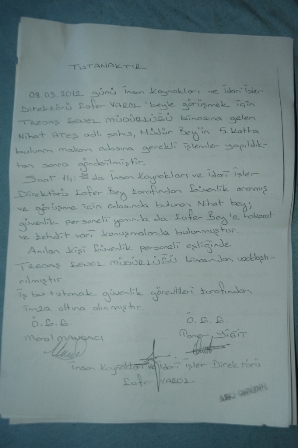 TUTANAKTIR
08.03.2012 günü İnsan Kaynakları ve İdari İşler
Direktörü Zafer VAROL Bey'le görüşmek için
GENEL MÜDÜRLÜĞÜ binasına gelen
Nihat ATEŞ adlı şahıs, Müdür Bey'in 5. katta
bulunan makam odasına gerekli işlemler yapıldık-
tan sonra gönderilmiştir.
Saat da İnsan Kaynakları ve İdari İşler
Direktörü Zafer Bey tarafından güvenlik aranmış
ve görüşme için odasında bulunan Nihat bey,
güvenlik personeli yanında da Zafer Bey'e hakaret
ve tehdit vari konuşmalarda bulunmuştur.
Anılan kişi güvenlik personeli eşliğinde
GENEL MÜDÜRLÜĞÜ binasından uzaklaştı-
rılmıştır.
İş bu tutanak güvenlik görevlileri tarafından
imza altına alınmıştır.
Ö.G.G Ö.G.G
Meral YİĞİT
İnsan Kaynakları ve İdari İşler Direktörü
Zafer VAROL